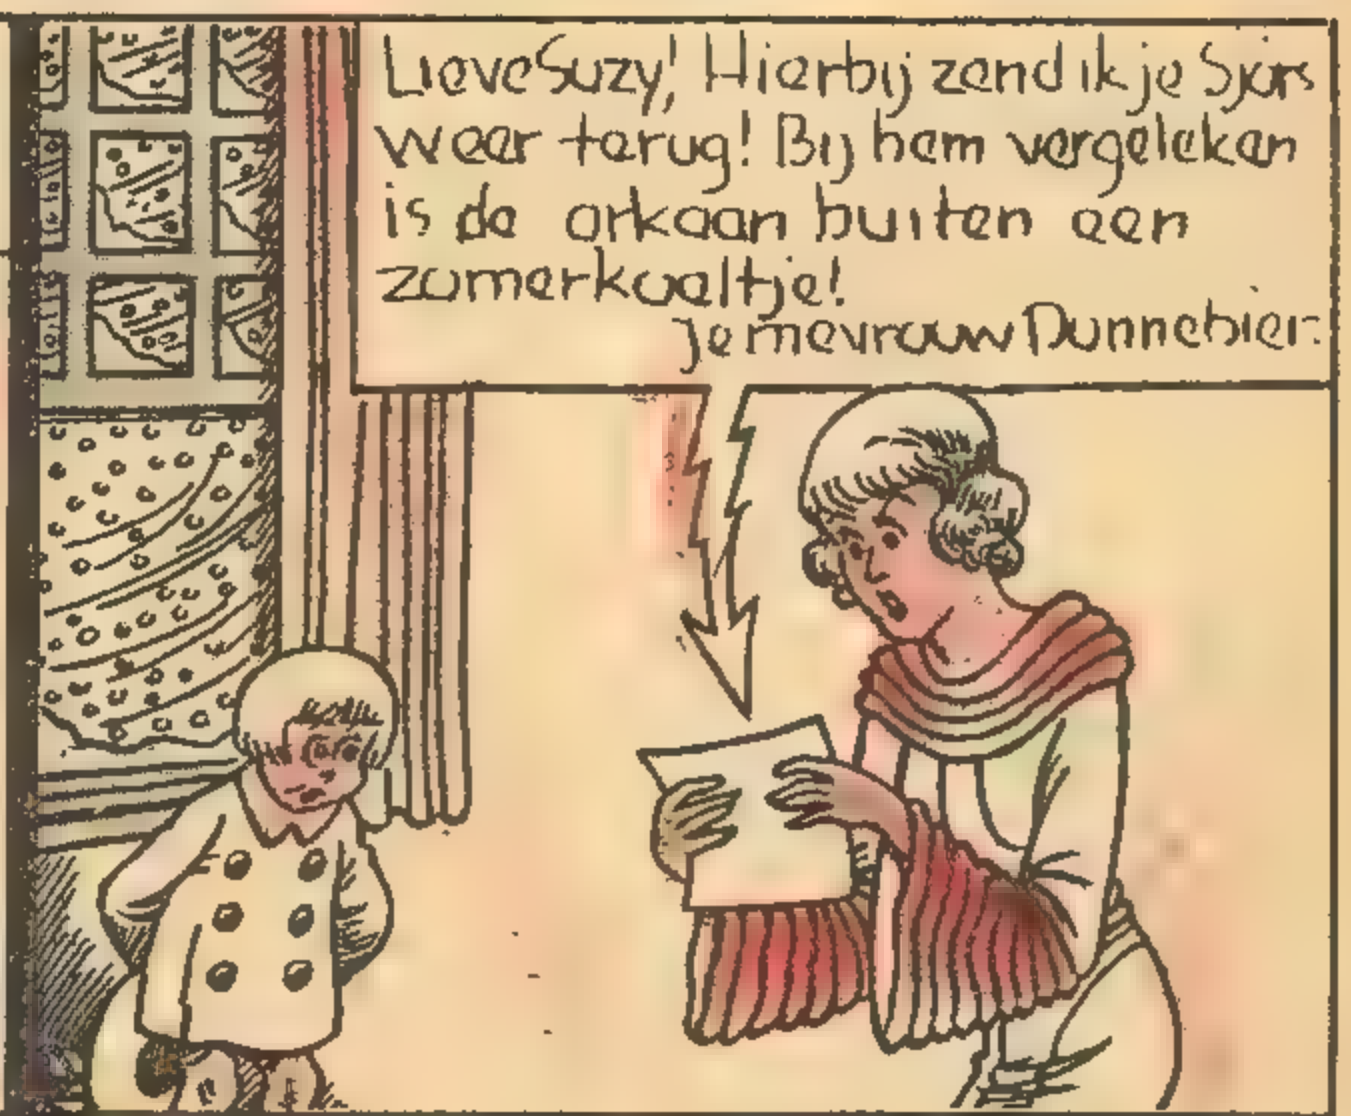 Lieve Suzy! Hierbij zend ik je Sjors
weer terug! Bij hem vergeleken
is de orkaan buiten een
zomerkoeltje!
Je mevrouw Dunnebier.